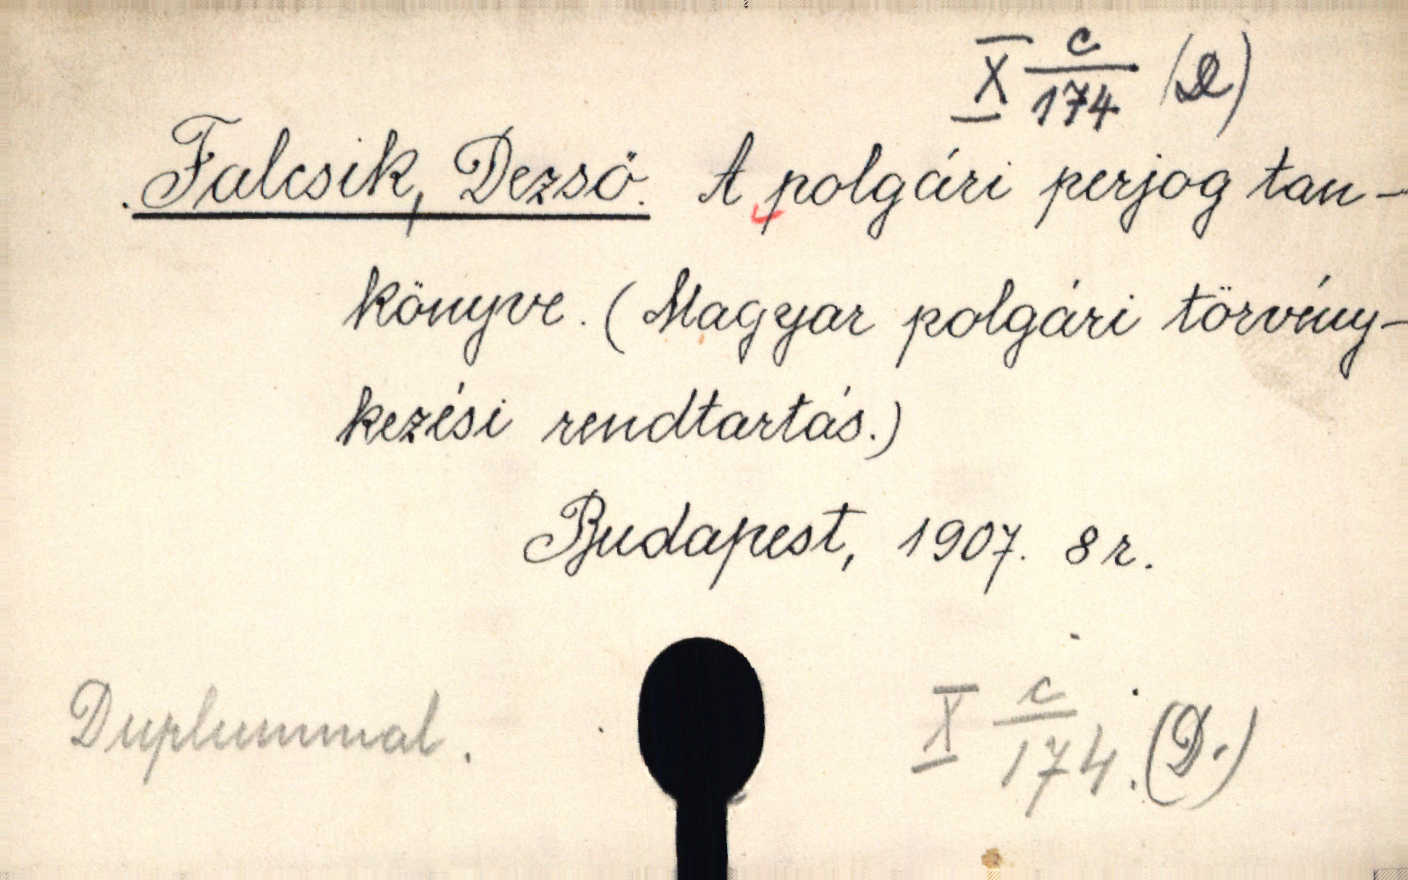 X c/174 (D)
Falcsik, Dezső. A polgári perjog tan-
könyve. (Magyar polgári törvény-
kezési rendtartás.)
Budapest, 1907. 8 r.
Duplummal.
X c/174. (D.)